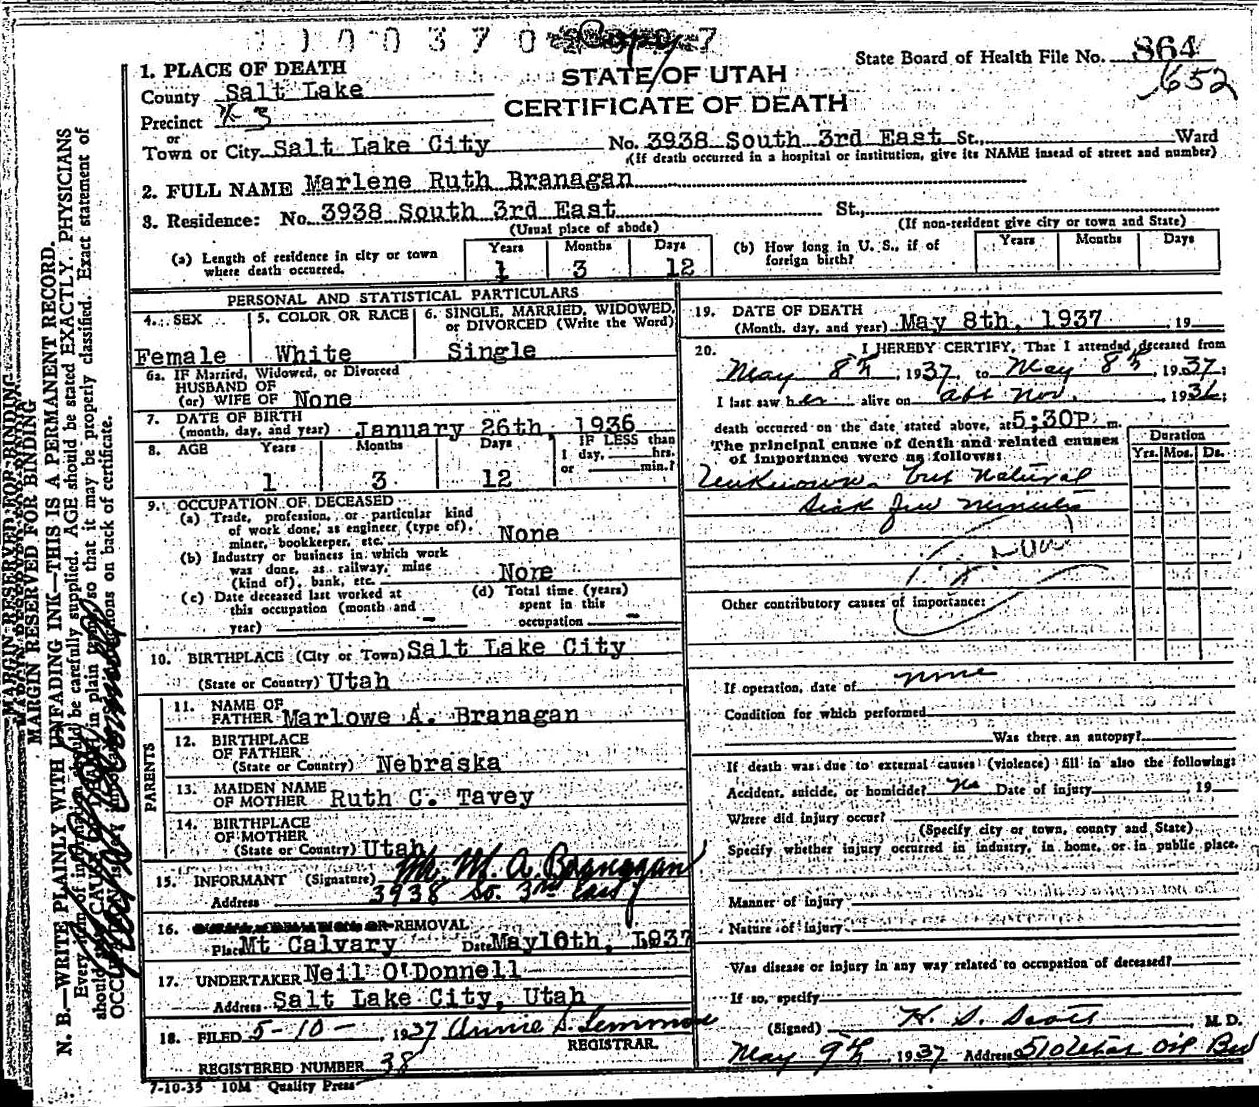 STATE OF UTAH
CERTIFICATE OF DEATH
State Board of Health File No. 864
652
1. PLACE OF DEATH
County Salt Lake
Precinct 3
or
Town or City Salt Lake City No. 3938 South 3rd East St., Ward
(If death occurred in a hospital or institution, give its NAME instead of street and number)
2. FULL NAME Marlene Ruth Branagan
3. Residence: No. 3938 South 3rd East St.,
(Usual place of abode) (If non-resident give city or town and State)
(a) Length of residence in city or town where death occurred. Years 1 Months 3 Days 12
(b) How long in U. S., if of foreign birth? Years Months Days
PERSONAL AND STATISTICAL PARTICULARS
4. SEX 5. COLOR OR RACE 6. SINGLE, MARRIED, WIDOWED,
or DIVORCED (Write the Word)
Female White Single
6a. IF Married, Widowed, or Divorced
HUSBAND OF
(or) WIFE OF None
7. DATE OF BIRTH
(month, day, and year) January 26th, 1936
8. AGE Years Months Days IF LESS than
1 day, hrs.
or min.?
1 3 12
9. OCCUPATION OF DECEASED
(a) Trade, profession, or particular kind
of work done, as engineer, (type of),
miner, bookkeeper, etc. None
(b) Industry or business in which work
was done, as railway, mine
(kind of), bank, etc. None
(c) Date deceased last worked at
this occupation (month and
year) -
(d) Total time (years)
spent in this
occupation -
10. BIRTHPLACE (City or Town) Salt Lake City
(State or Country) Utah
PARENTS
11. NAME OF
FATHER Marlowe A. Branagan
12. BIRTHPLACE
OF FATHER
(State or Country) Nebraska
13. MAIDEN NAME
OF MOTHER Ruth C. Tavey
14. BIRTHPLACE
OF MOTHER
(State or Country) Utah
15. INFORMANT (Signature) Mr. M. A. Branagan
Address 3938 So. 3rd East
16. OR REMOVAL
Place Mt Calvary Date May 10th, 1937
17. UNDERTAKER Neil O'Donnell
Address Salt Lake City, Utah
18. FILED 5-10-, 1937 Annie S.
REGISTRAR.
REGISTERED NUMBER 38
7-10-35 10M Quality Press
19. DATE OF DEATH
(Month, day, and year) May 8th, 1937, 19
20. I HEREBY CERTIFY, That I attended deceased from
May 8th, 1937, to May 8th, 1937;
I last saw her alive on abt Nov. 1936;
death occurred on the date stated above, at 5;30P. m.
The principal cause of death and related causes
of importance were as follows:
Duration
Yrs. Mos. Ds.
Unknown. but Natural
Sick few minutes
Other contributory causes of importance:
If operation, date of none
Condition for which performed
Was there an autopsy?
If death was due to external causes (violence) fill in also the following:
Accident, suicide, or homicide? No Date of injury 19
Where did injury occur?
(Specify city or town, county and State)
Specify whether injury occurred in industry, in home, or in public place.
Manner of injury
Nature of injury
Was disease or injury in any way related to occupation of deceased?
If so, specify
(Signed) H. S. Scott M. D.
May 9th, 1937 Address 510 Utah Oil Bld
MARGIN RESERVED FOR BINDING
N. B.—WRITE PLAINLY WITH UNFADING INK—THIS IS A PERMANENT RECORD.